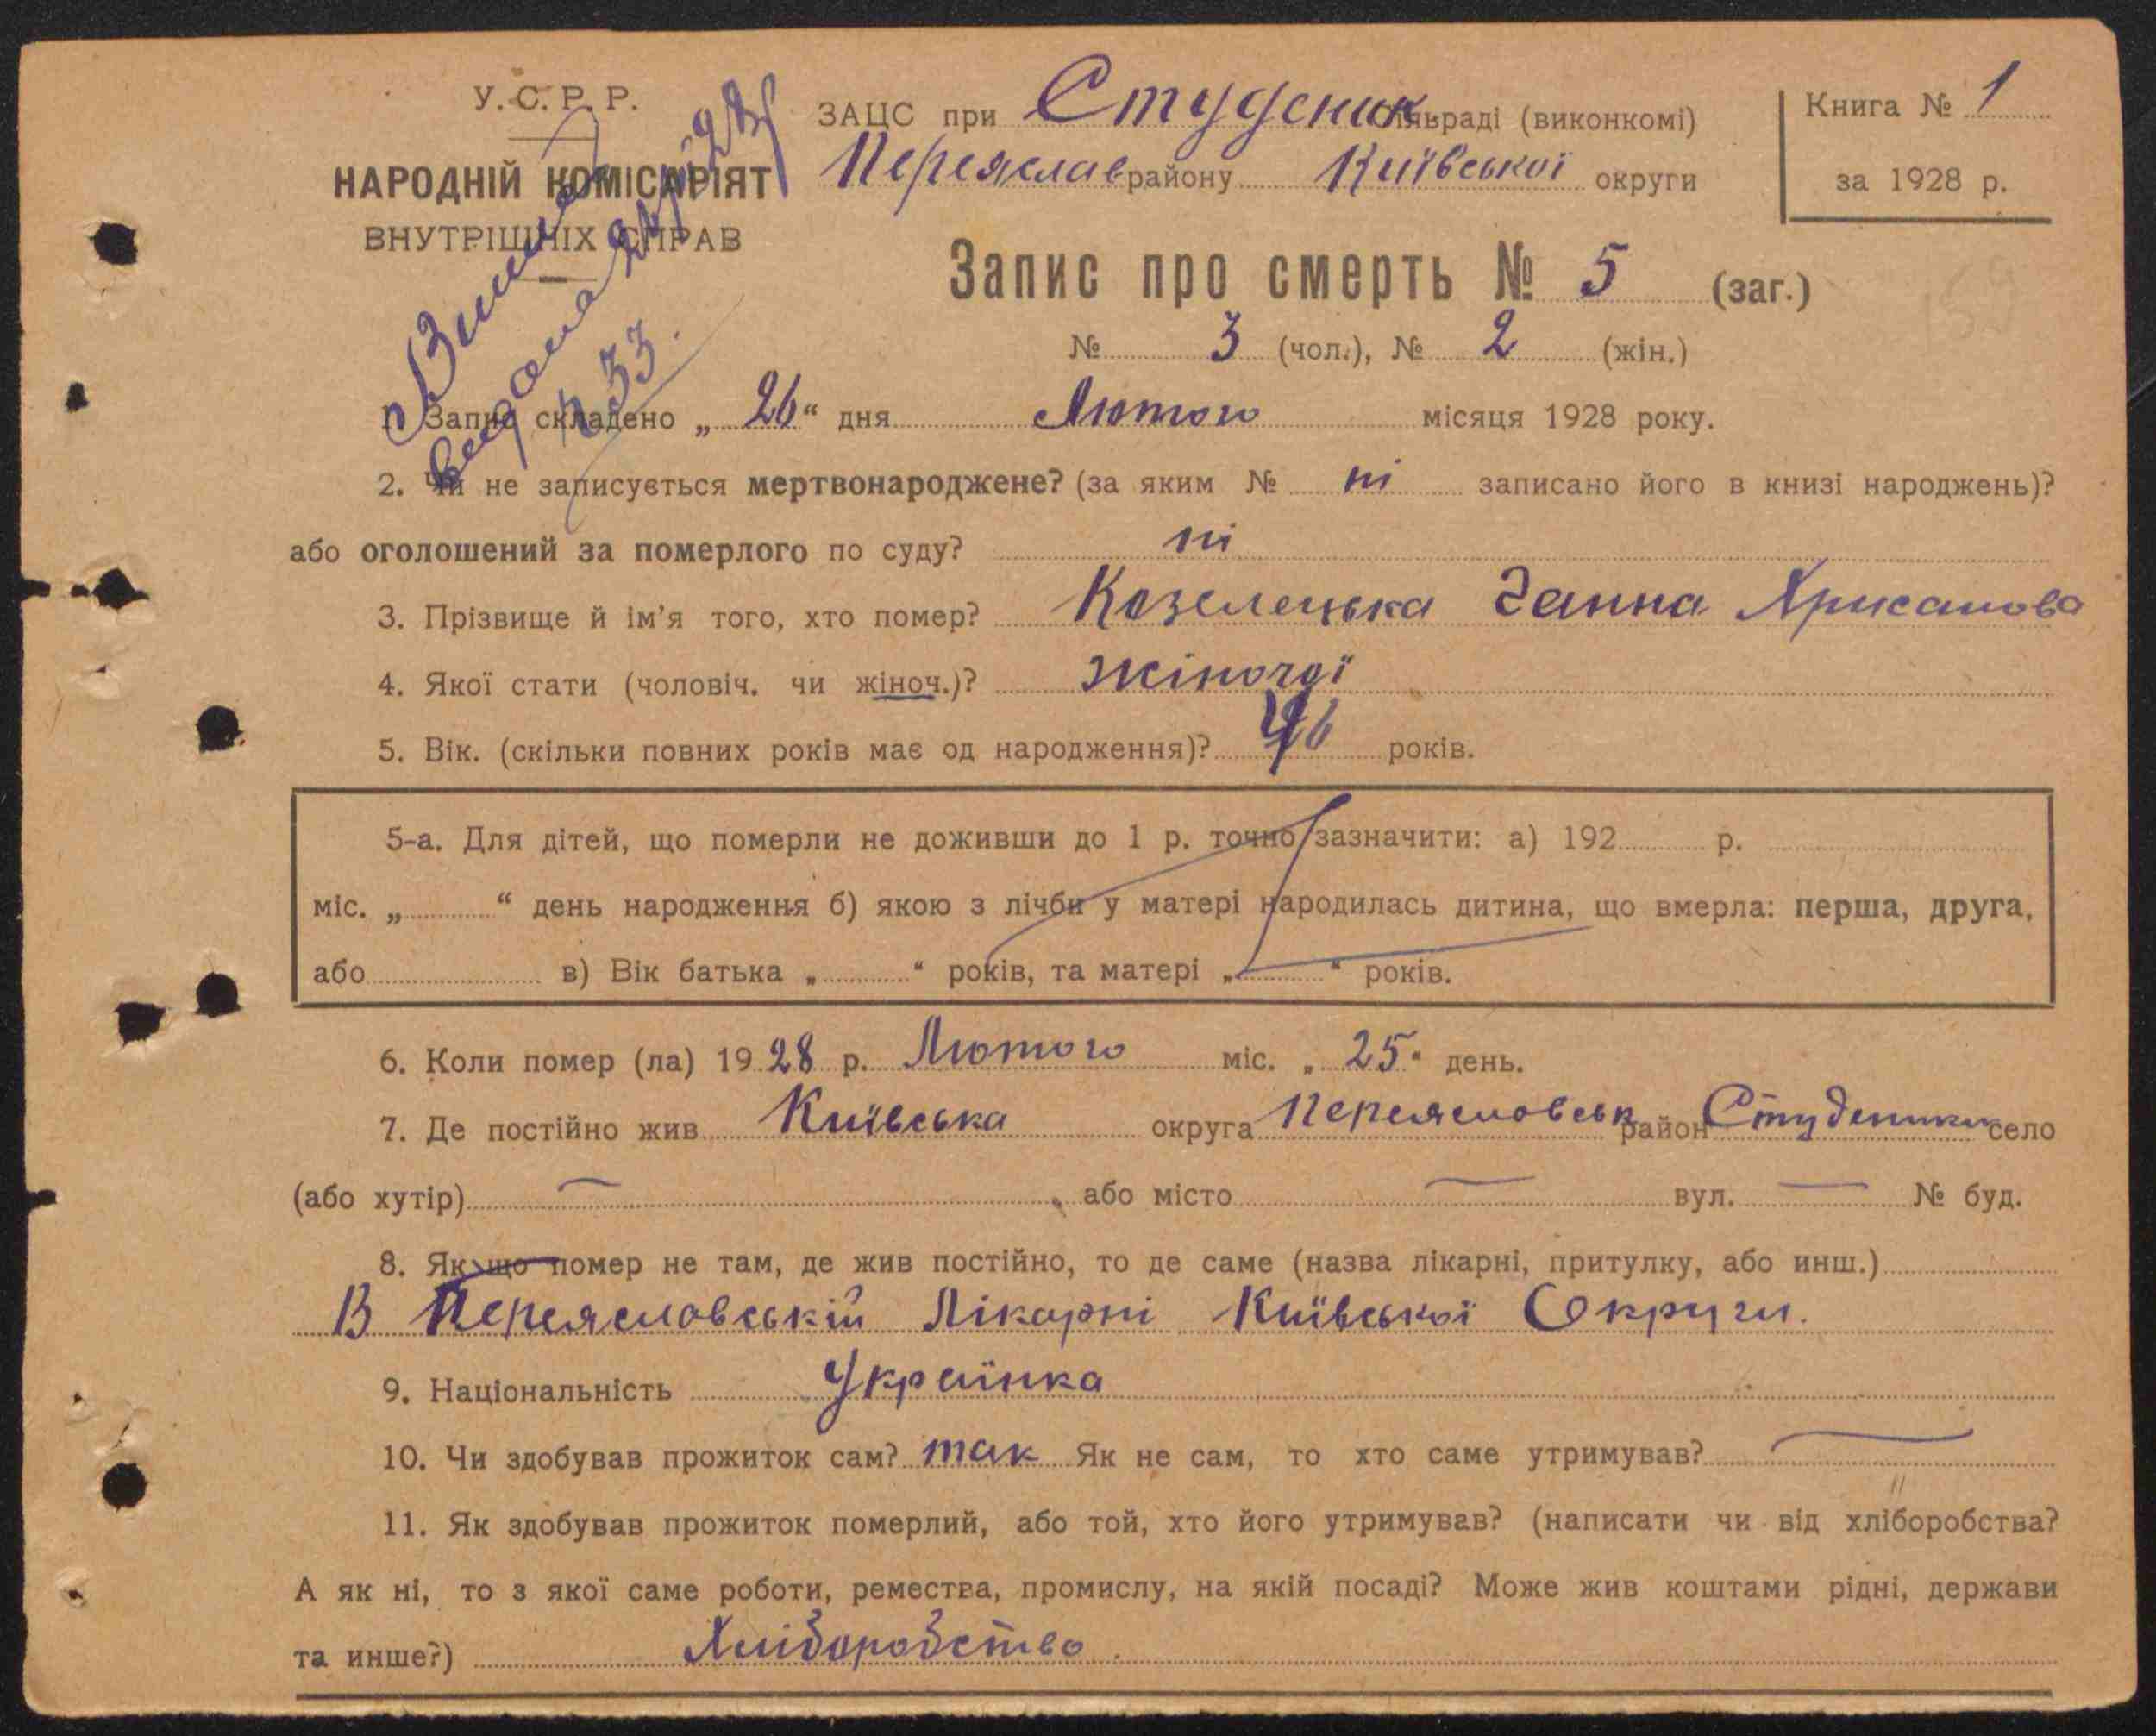 У. С. Р. Р.
НАРОДНІЙ КОМІСАРІЯТ
ВНУТРІШНІХ СПРАВ
ЗАЦС при Студеник. сільраді (виконкомі)
Переяслав району Київської округи
Книга № 1
за 1928 р.
Запис про смерть № 5 (заг.)
№ 3 (чол.), № 2 (жін.)
1. Запис складено „26“ дня Лютого місяця 1928 року.
2. Чи не записується мертвонароджене? (за яким № ні записано його в книзі народжень)?
або оголошений за померлого по суду? ні
3. Прізвище й ім'я того, хто помер? Козелецька Ганна Хрисанова
4. Якої стати (чоловіч. чи жіноч.)? жіночої
5. Вік. (скільки повних років має од народження)? років.
5-а. Для дітей, що померли не доживши до 1 р. точно зазначити: а) 192 р.
міс. „ “ день народження б) якою з лічби у матері народилась дитина, що вмерла: перша, друга,
або в) Вік батька „ “ років, та матері „ “ років.
6. Коли помер (ла) 1928 р. Лютого міс. „25“ день.
7. Де постійно жив Київська округа Переясловськ район Студеники село
(або хутір) — або місто — вул. — № буд.
8. Якщо помер не там, де жив постійно, то де саме (назва лікарні, притулку, або инш.)
В Переясловській Лікарні Київської Округи.
9. Національність Українка
10. Чи здобував прожиток сам? так Як не сам, то хто саме утримував? —
11. Як здобував прожиток померлий, або той, хто його утримував? (написати чи від хліборобства?
А як ні, то з якої саме роботи, ремества, промислу, на якій посаді? Може жив коштами рідні, держави
та инше?) Хліборобство.